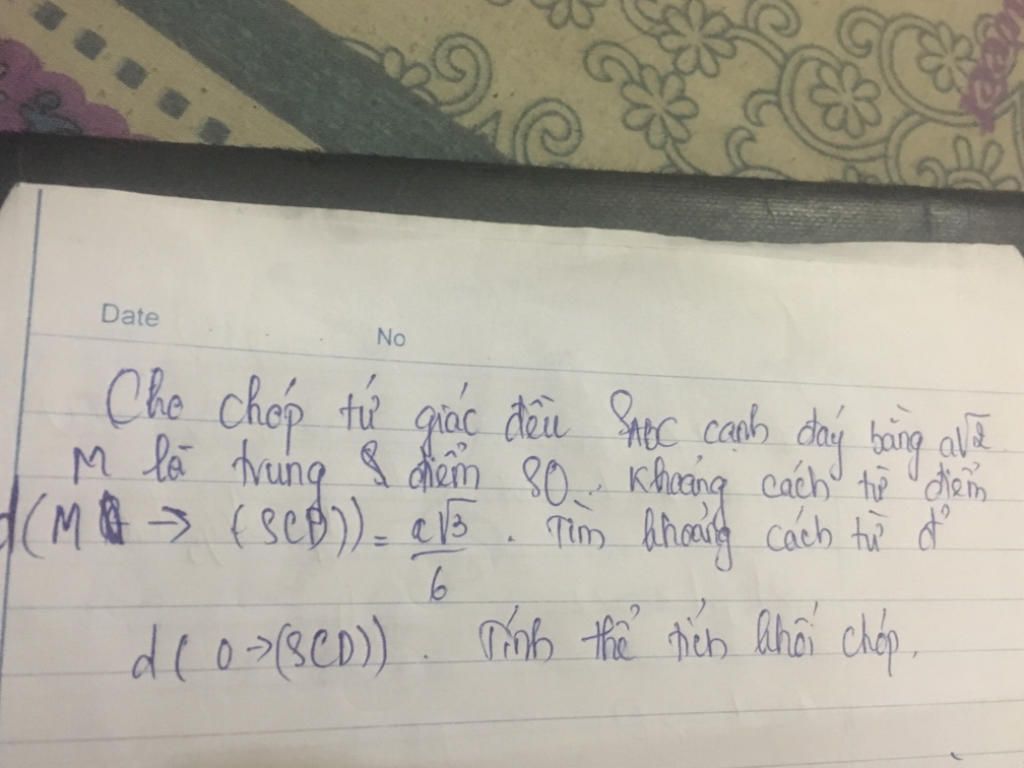 Date
No
Cho chóp tứ giác đều SABC cạnh đáy bằng a√2
M là trung điểm SO. Khoảng cách từ điểm
d(M → (SCD)) = a√3/6. Tìm khoảng cách từ đ'
d( O → (SCD)). Tính thể tích khối chóp.